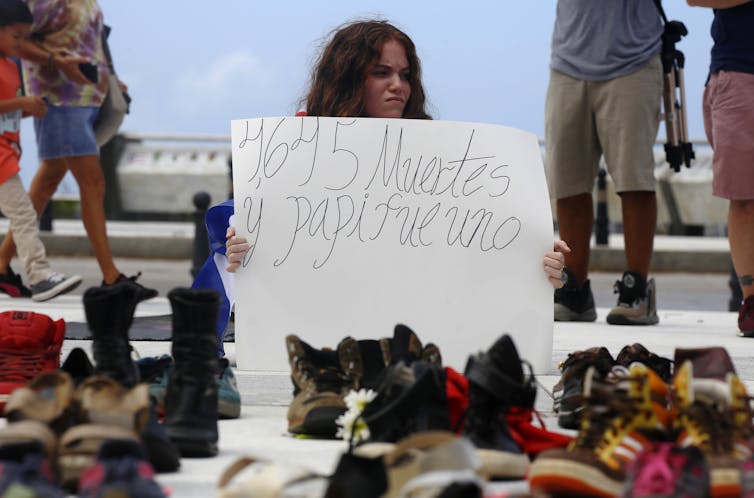 4,645 Muertes
y papi fue uno